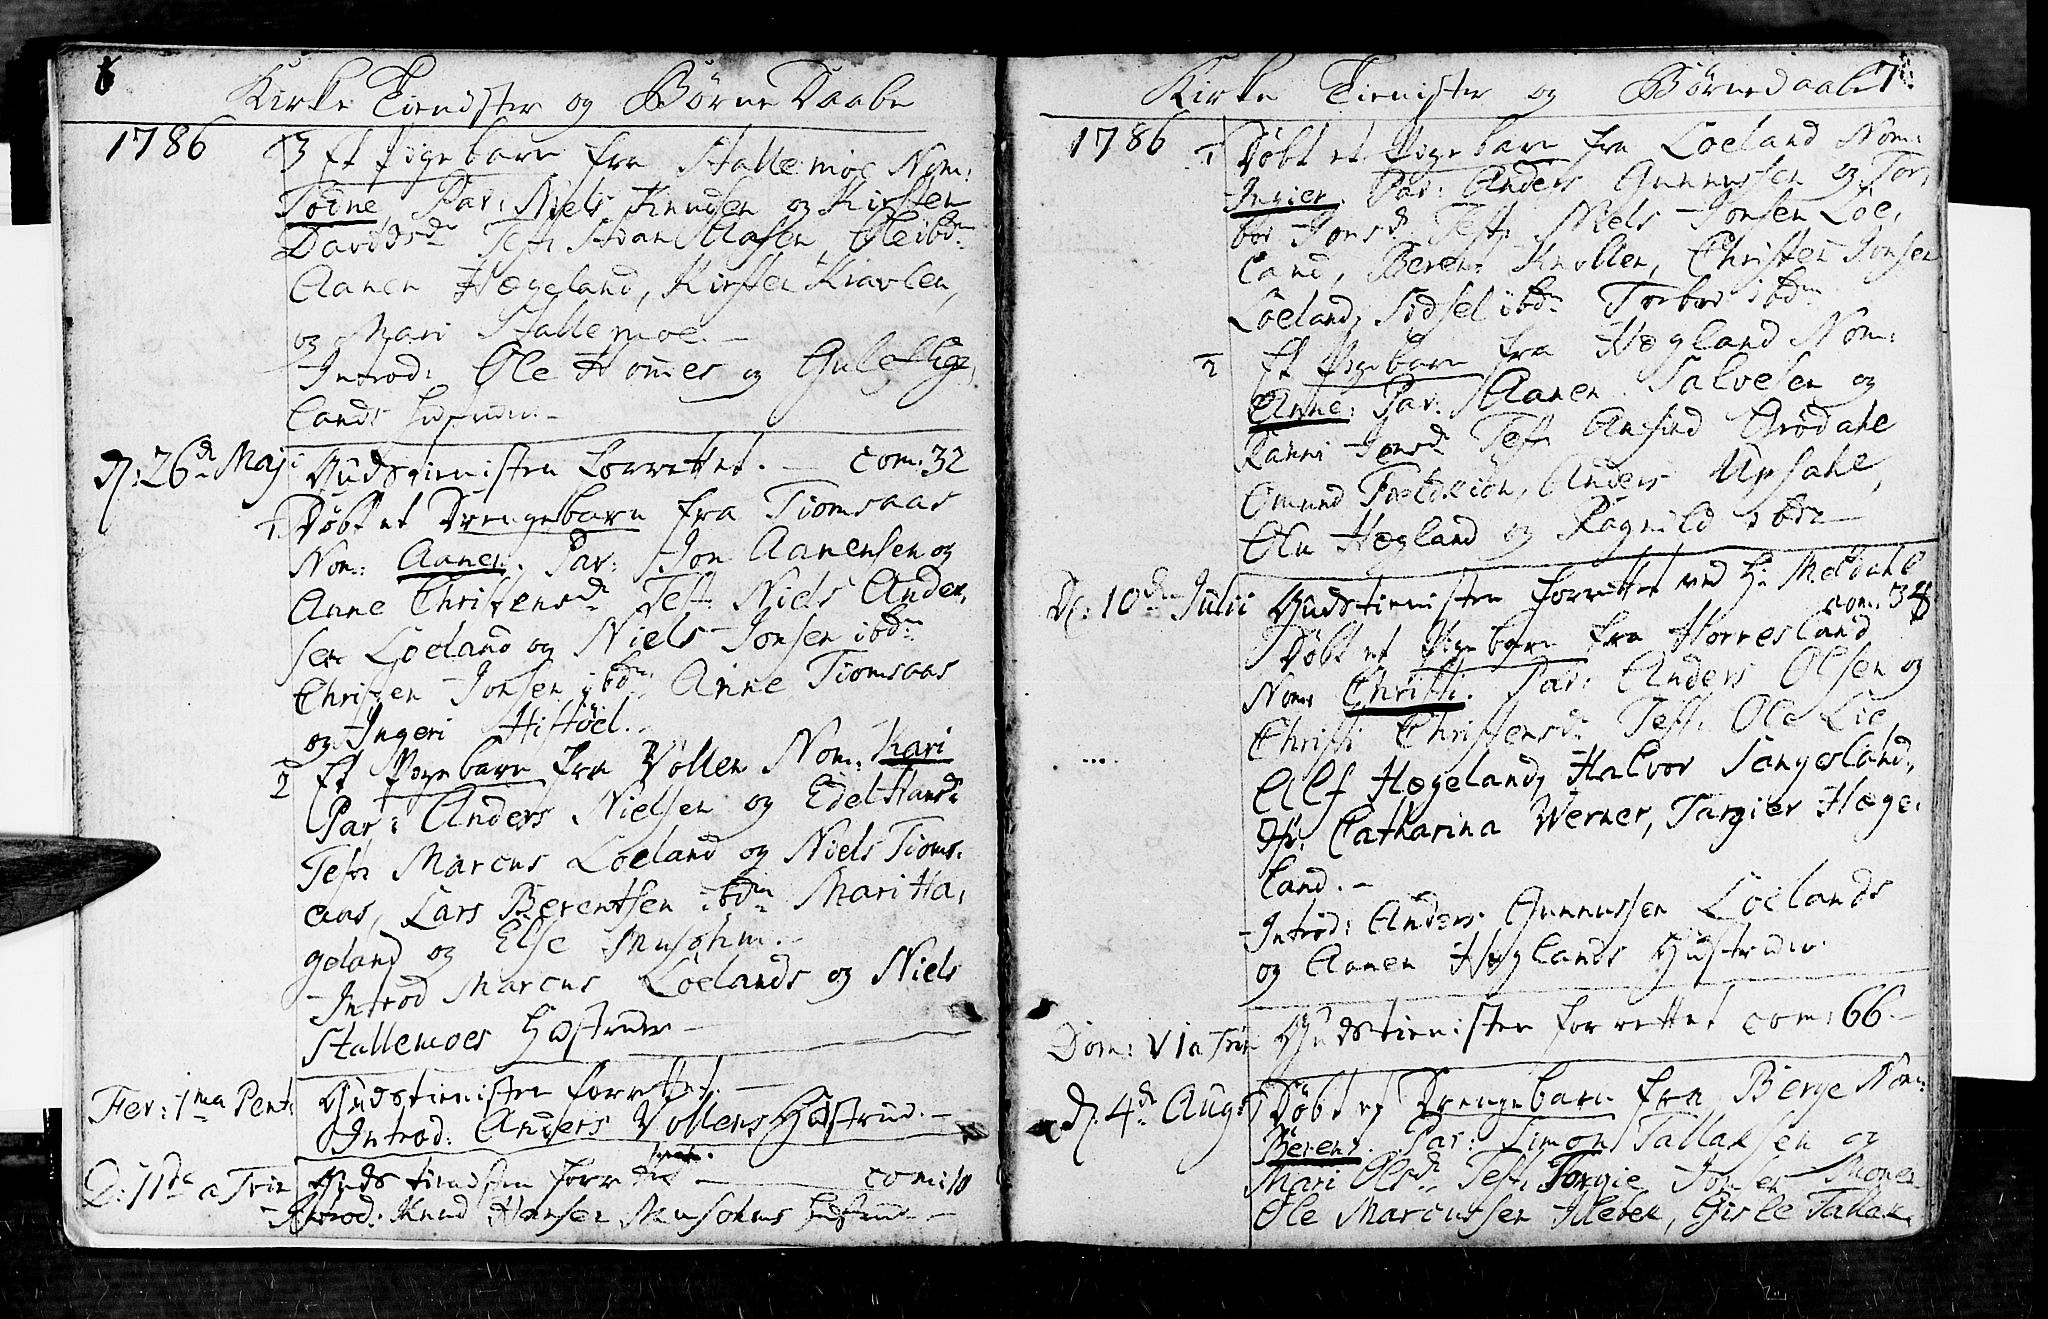 6
Kirke Tienister og Børne Daabe
1786
3 Et Pigebarn fra Stallemoe Nom:
Todne, Par: Niels Knudsen og Kirsten
Davidsdr Test: Stean Olasen, Ole ibdm
Aanen Hægeland, Kirsten Kiavlen,
og Mari Stallemoe.-
Introd: Ole Homes og
lands Hustruer.-
D: 26de Maji Gudstienisten forrettet. - com: 32
1. Døbt et Drengebarn fra Tiomsaas
Nom: Aanen. Par: Jon Aanensen og
Anne Christensdr Test: Niels Ander,
sen Loeland og Niels Jonsen ibdm
Christen Jonsen ibdm Anne Tiomsaas
og Ingeri Histöel.
2 Et Pigebarn fra Vollen Nom: Kari
Par: Anders Nielsen og Edel Hansdr
Test: Marcus Loeland og Niels Tioms,
aas, Lars Berentsen ibdm Mari Ha,
geland og Else Musohm.-
-Introd Marcus Loelands og Niels
Stallemoes Hustruer -
Fer: 1ma Pent: Gudstienisten forrettet. -
Introd: Anders Vollens Hustrue. -
D: 11te a Trin Gudstienisten forrettet - com: 10
-Introd: Knud Hansen Musohms Hustrue -
Kirke Tienister og Børnedaabe 7.
1786
1 Døbt et Pigebarn fra Loeland Nom:
Ingier. Par: Anders Gunnufsen og Tor,
bor Jonsdr Test: Niels Jonsen Loe,
land, Berent Knollen, Christen Jonsen
Loeland, Sidsel ibdm Torbor ibdm
2 Et Pigebarn fra Hægland Nom:
Anne: Par: Aanen Salvesen og
Ranni Jonsdr Test: Aasind Orødahl
Omund Anders Upsahl,
Ole Hægland og Ragnild ibdm
D: 10de Julii Gudstienisten forrettet ved Hr Meldahl
com: 38
1 Døbt et Pigebarn fra Horresland
Nom: Christi. Par: Anders Olsen og
Christi Christensdr Test: Ole Lie,
Alf Hægeland, Halvor Sangesland,
Catharina Werner, Targier Hæge,
land. -
-Introd: Anders Gunnufsen Loelands
og Aanen Hæglands Hustruer.
Dom: VI a Trin Gudstienisten forrettet com: 66.-
D: 4de Aug: 1 Døbt et Drengebarn fra Berge Nom:
Berent. Par: Simon Tallaksen og
Mari Olsdr Test: Torgie Moner
Ole Marcussen Ilebek, Gisle Tallak,